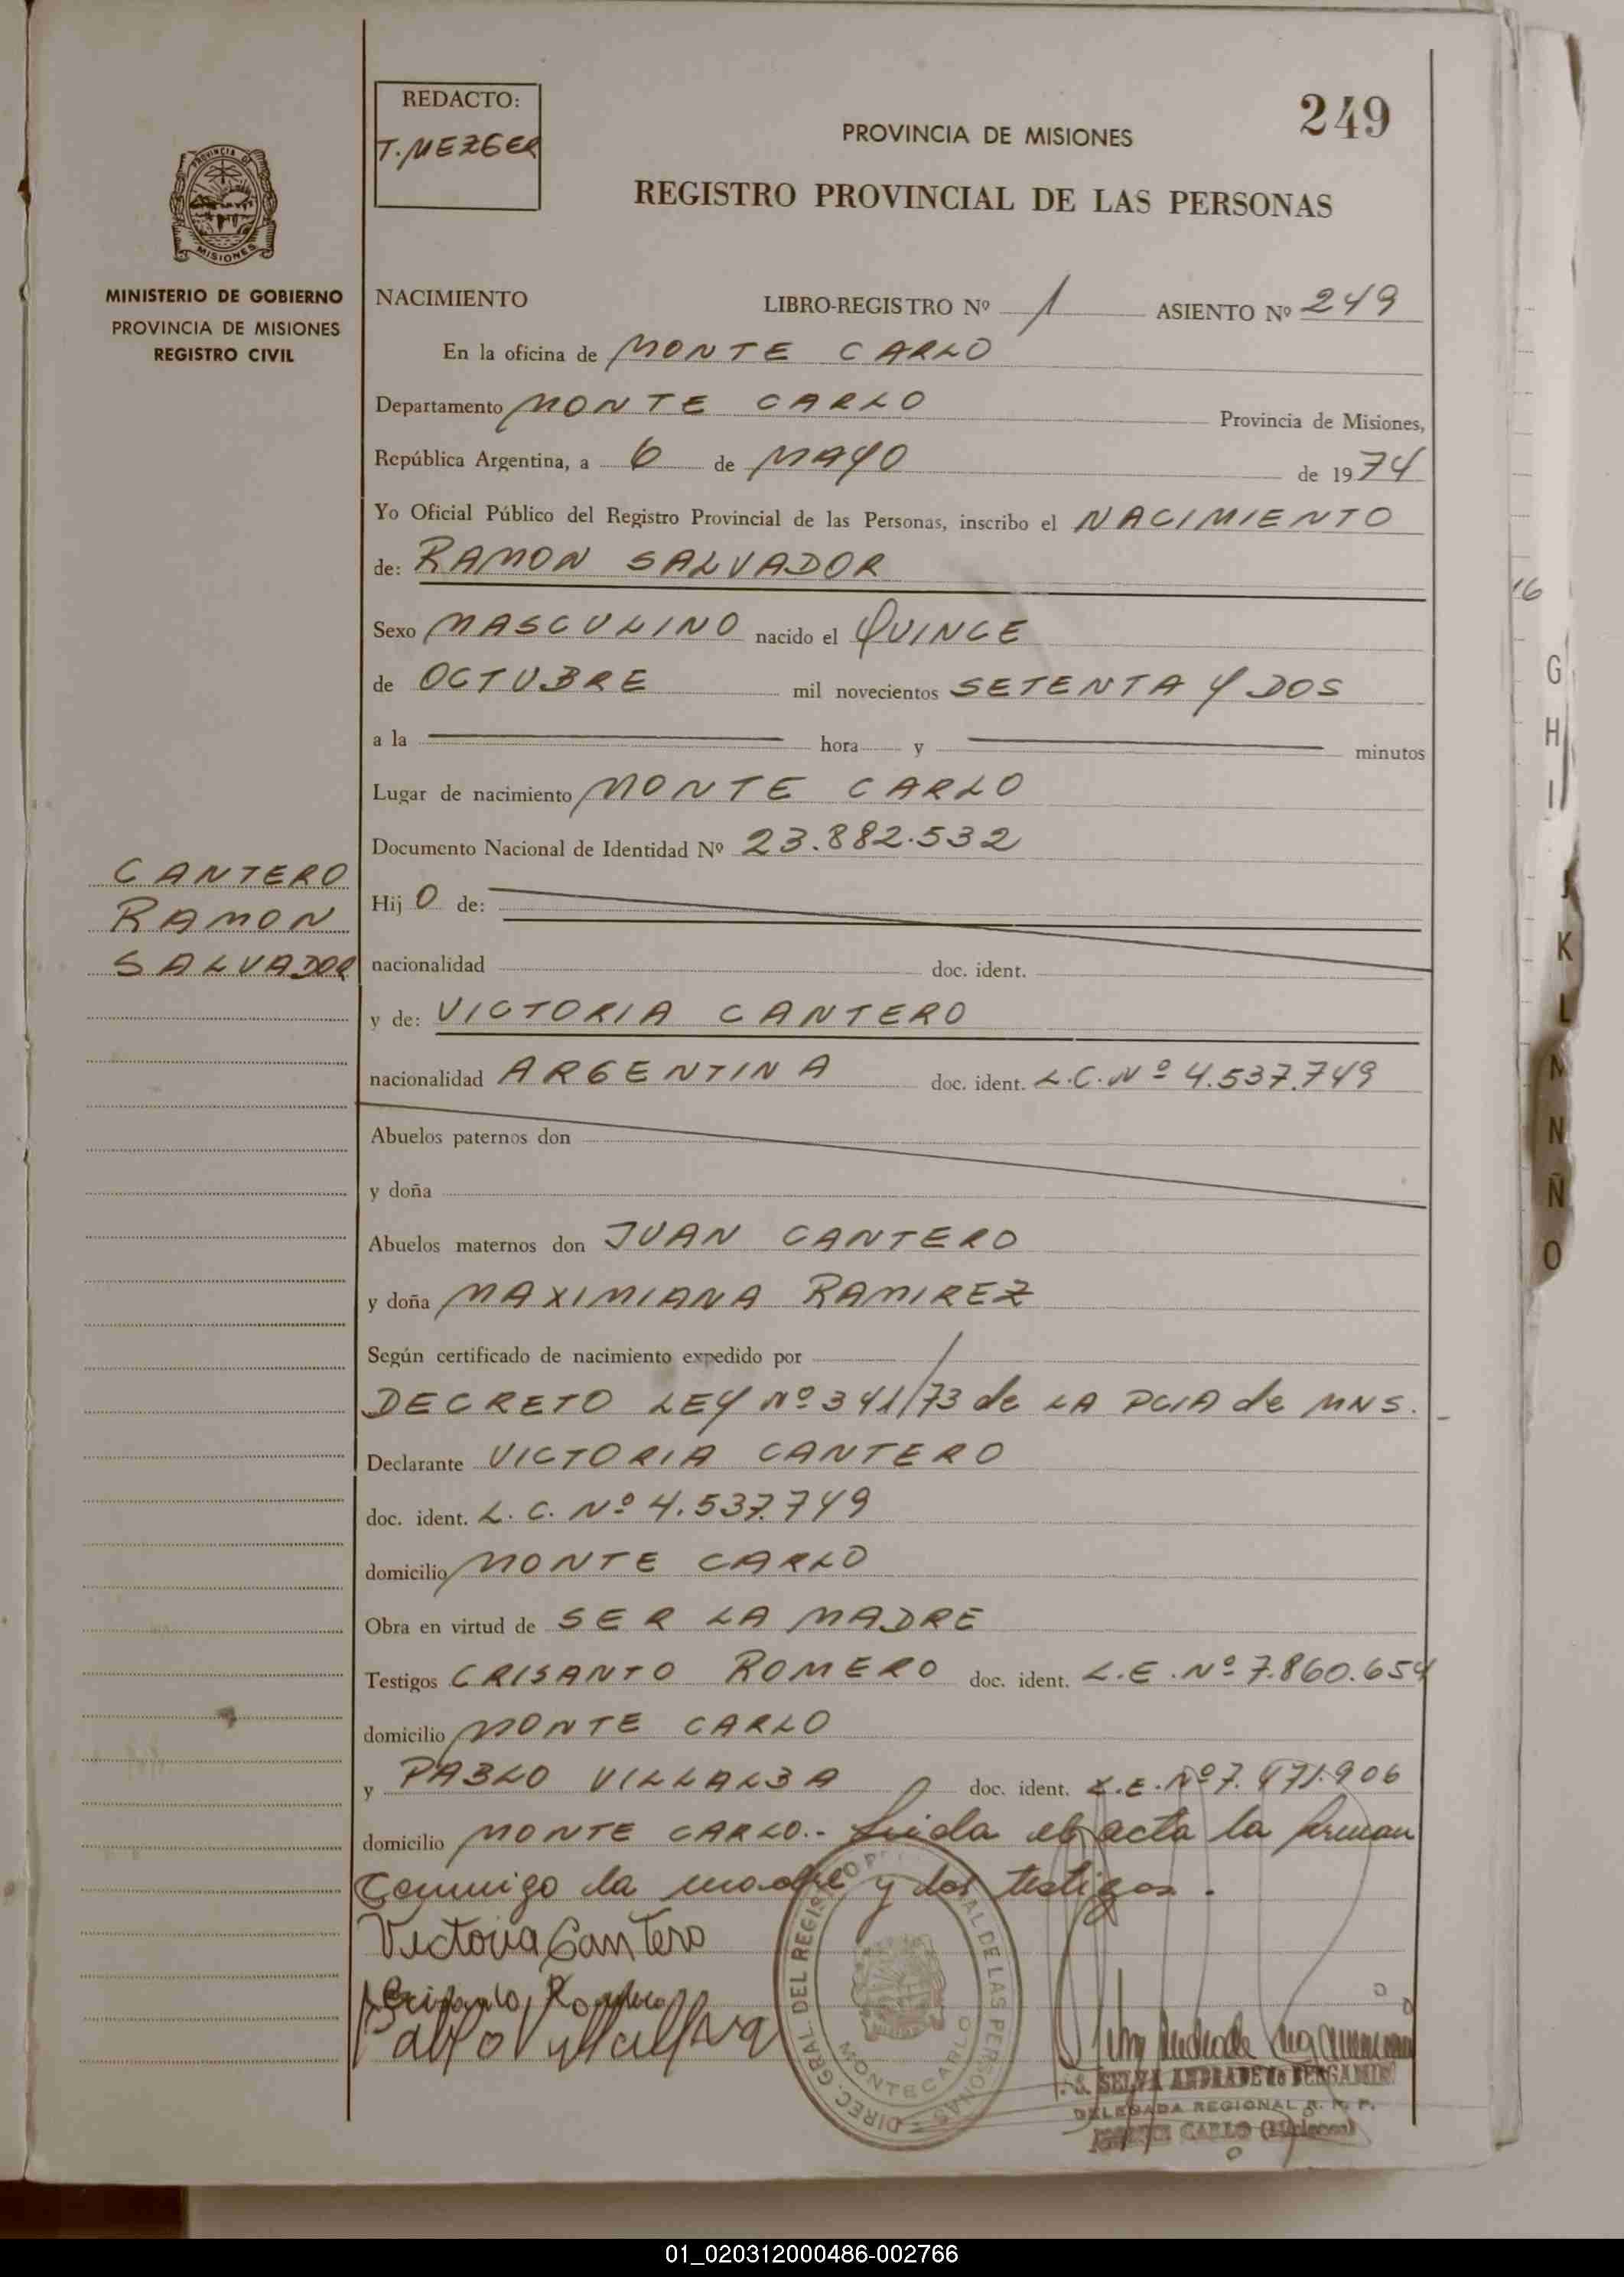 REDACTO:
T. MEZGER
249
PROVINCIA DE MISIONES
REGISTRO PROVINCIAL DE LAS PERSONAS
PROVINCIA DE
MISIONES
MINISTERIO DE GOBIERNO
PROVINCIA DE MISIONES
REGISTRO CIVIL
NACIMIENTO LIBRO-REGISTRO Nº 1 ASIENTO Nº 249
En la oficina de MONTE CARLO
Departamento MONTE CARLO Provincia de Misiones,
República Argentina, a 6 de MAYO de 1974
Yo Oficial Público del Registro Provincial de las Personas, inscribo el NACIMIENTO
de: RAMON SALVADOR
Sexo MASCULINO nacido el QUINCE
de OCTUBRE mil novecientos SETENTA Y DOS
a la hora y minutos
Lugar de nacimiento MONTE CARLO
Documento Nacional de Identidad Nº 23.882.532
CANTERO
RAMON
SALVADOR
Hij O de:
nacionalidad doc. ident.
y de: VICTORIA CANTERO
nacionalidad ARGENTINA doc. ident. L.C. Nº 4.537.749
Abuelos paternos don
y doña
Abuelos maternos don JUAN CANTERO
y doña MAXIMIANA RAMIREZ
Según certificado de nacimiento expedido por /
DECRETO LEY Nº 341/73 de LA PCIA de MNS.
Declarante VICTORIA CANTERO
doc. ident. L. C. Nº 4.537.749
domicilio MONTE CARLO
Obra en virtud de SER LA MADRE
Testigos CRISANTO ROMERO doc. ident. L.E. Nº 7.860.654
domicilio MONTE CARLO
y PABLO VILLALBA doc. ident. L.E. Nº 7.471.906
domicilio MONTE CARLO.- Leida el acta la firman
conmigo la madre y los testigos.
Victoria Cantero
Crisanto Romero
Pablo Villalba
DIREC. GRAL. DEL REGISTRO PROVINCIAL DE LAS PERSONAS
MONTECARLO
SELVA ANDRADE de BERGAMIN
DELEGADA REGIONAL R. P. P.
MONTE CARLO (Misiones)
16
G
H
I
J
K
L
M
N
Ñ
O
01_020312000486-002766